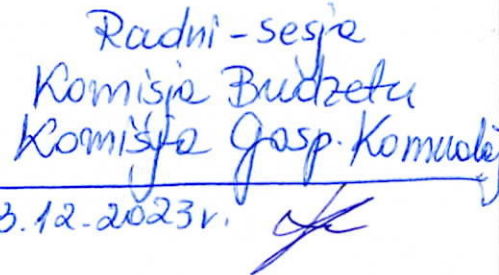 Radni - sesja
Komisja Budżetu
Komisja Gosp. Komunalnej
3.12.2023r.